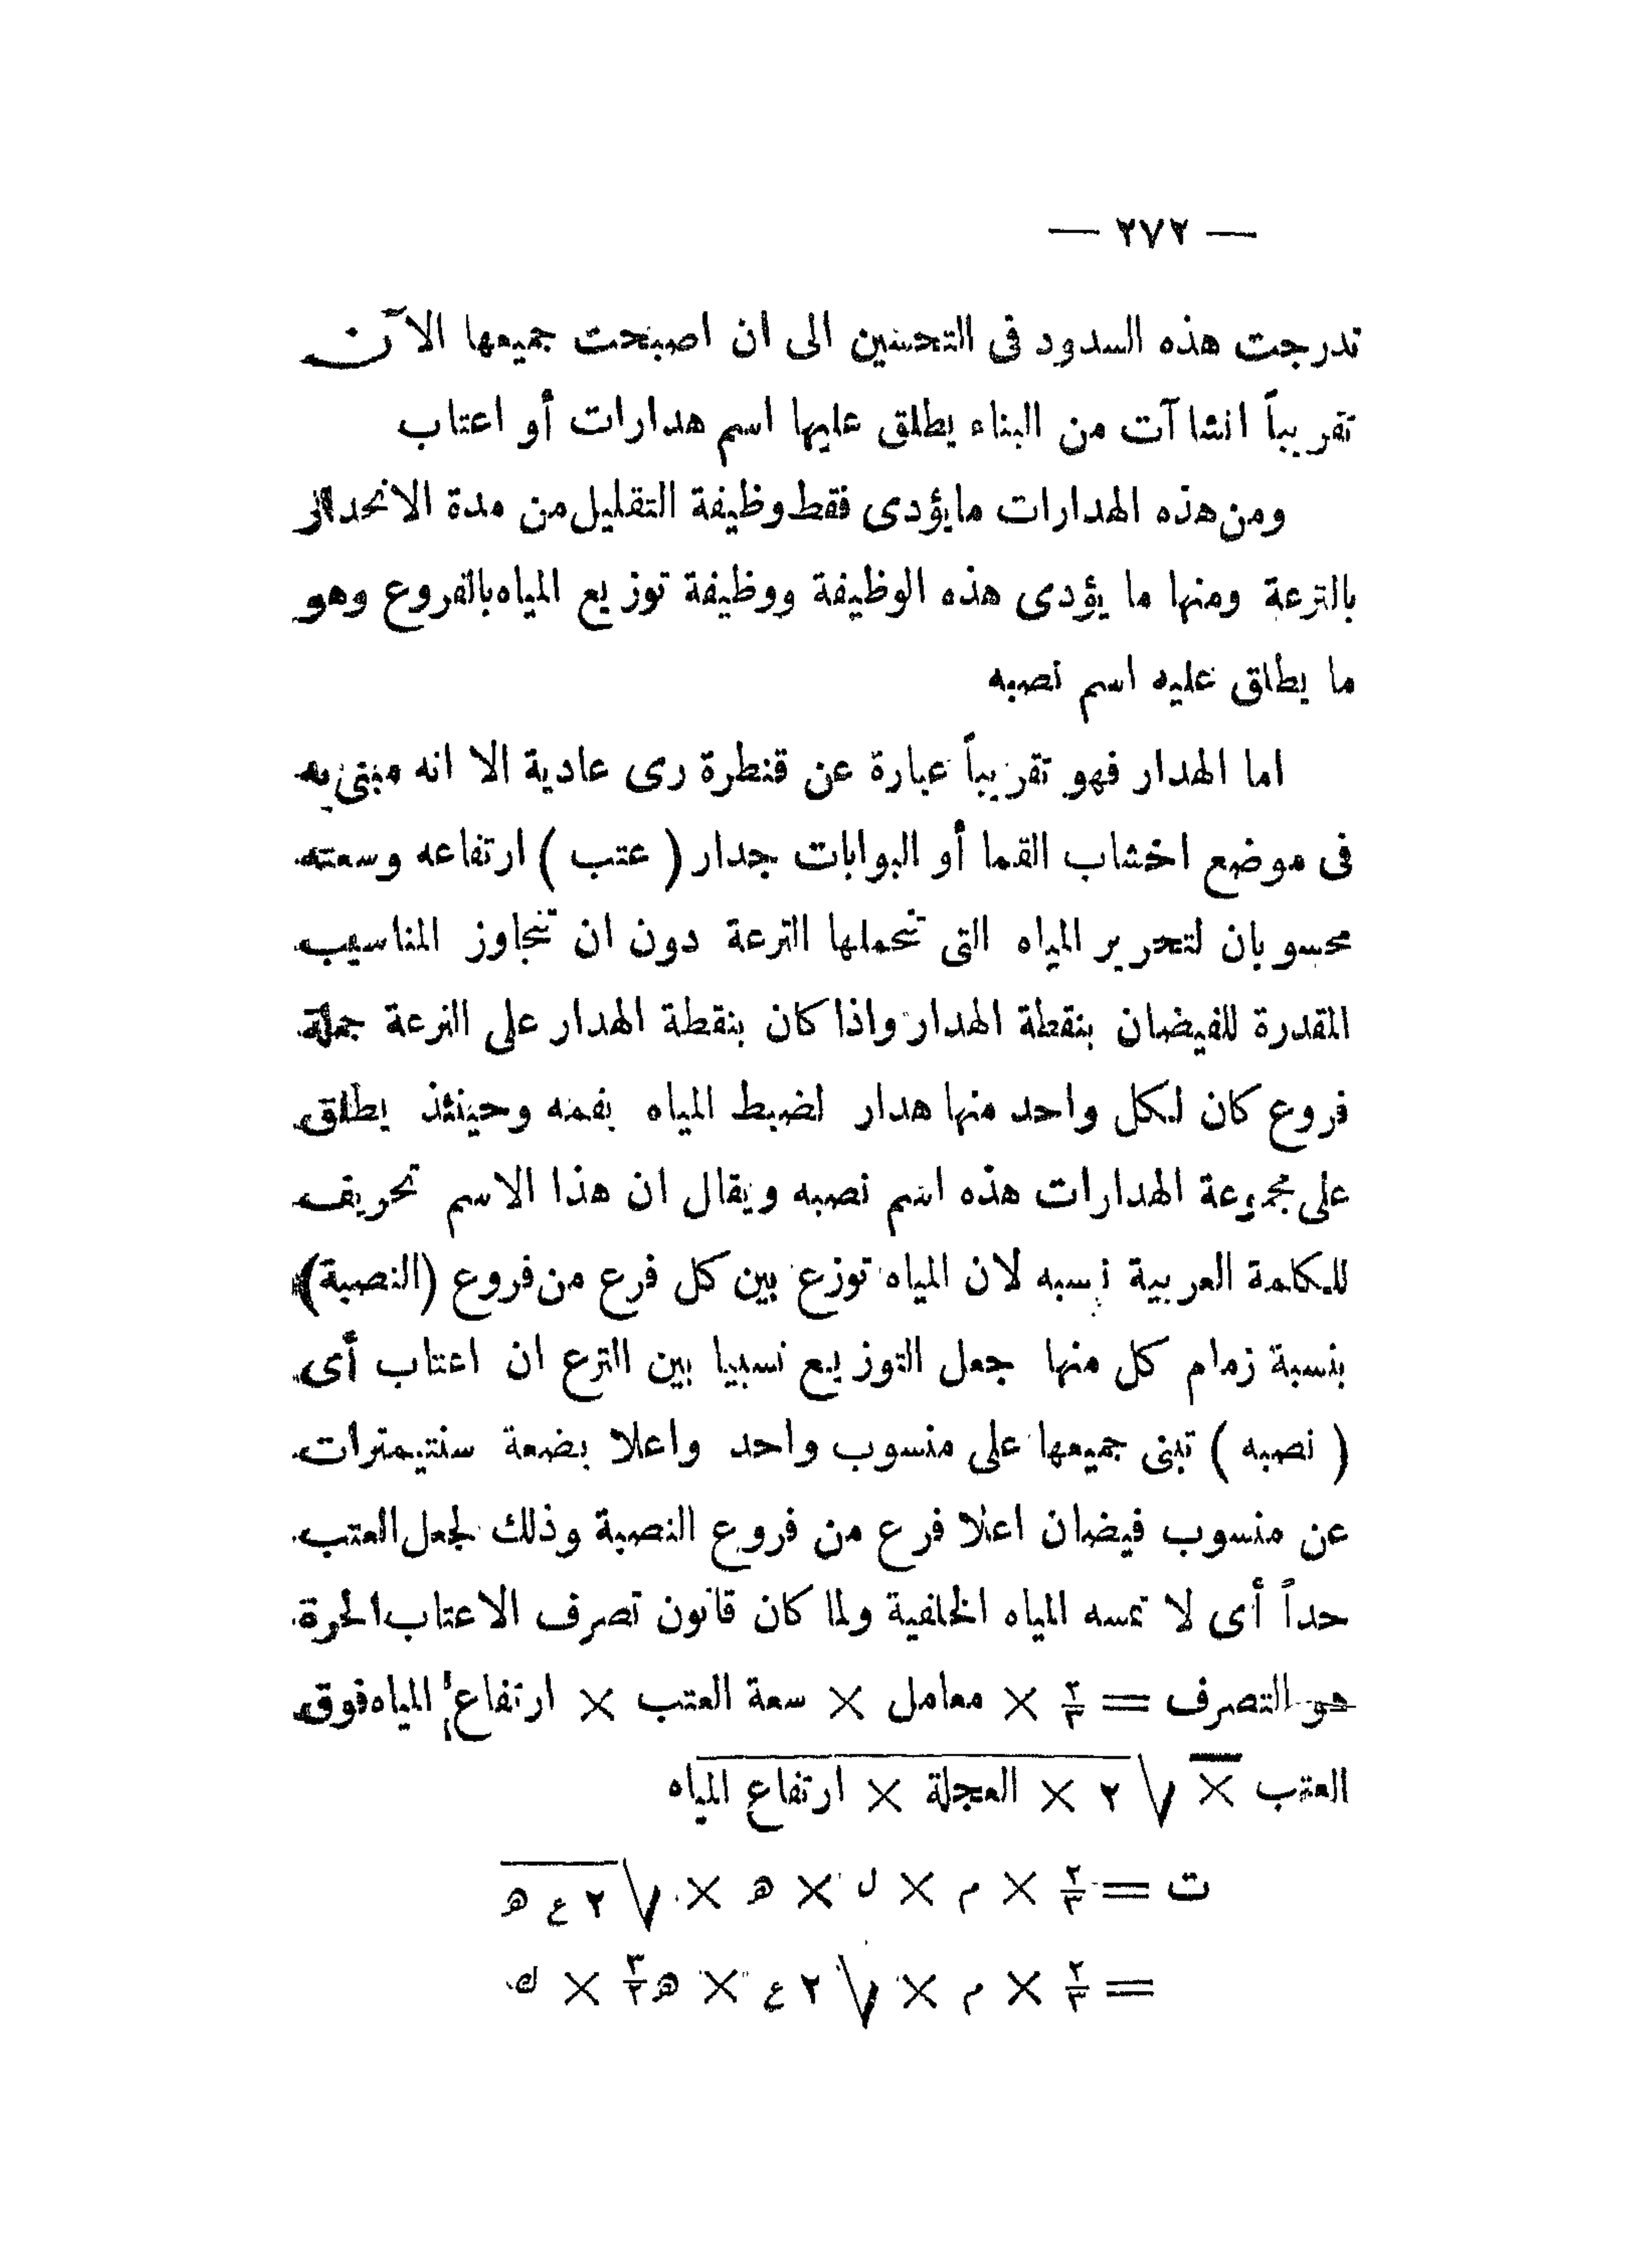 — ٢٧٢ —
تدرجت هذه السدود فى التحسين الى ان اصبحت جميعها الآن
تقريباً انشاآت من البناء يطلق عليها اسم هدارات أو اعتاب
ومن هذه الهدارات ما يؤدى فقط وظيفة التقليل من مدة الانحدار
بالترعة ومنها ما يؤدى هذه الوظيفة ووظيفة توزيع المياه بالفروع وهو
ما يطلق عليه اسم نصبه
اما الهدار فهو تقريباً عبارة عن قنطرة رى عادية الا انه مبنى به
فى موضع اخشاب القما أو البوابات جدار ( عتب ) ارتفاعه وسعته
محسوبان لتحرير المياه التى تحملها الترعة دون ان تتجاوز المناسيب
المقدرة للفيضان بنقطة الهدار واذا كان بنقطة الهدار على الترعة جملة
فروع كان لكل واحد منها هدار لضبط المياه بفمه وحينئذ يطلق
على مجموعة الهدارات هذه اسم نصبه ويقال ان هذا الاسم تحريف
للكلمة العربية نسبه لان المياه توزع بين كل فرع من فروع (النصبة)
بنسبة زمام كل منها جعل التوزيع نسبيا بين الترع ان اعتاب أى
( نصبه ) تبنى جميعها على منسوب واحد واعلا بضعة سنتيمترات
عن منسوب فيضان اعلا فرع من فروع النصبة وذلك لجعل العتب
حداً أى لا تمسه المياه الخلفية ولما كان قانون تصرف الاعتاب الحرة
هو التصرف = ٢/٣ × معامل × سعة العتب × ارتفاع المياه فوق
العتب × √٢ × العجلة × ارتفاع المياه
ت = ٢/٣ × م × ل × ه × √٢ ع ه
= ٢/٣ × م × √٢ ع × ه ٣/٢ × ل